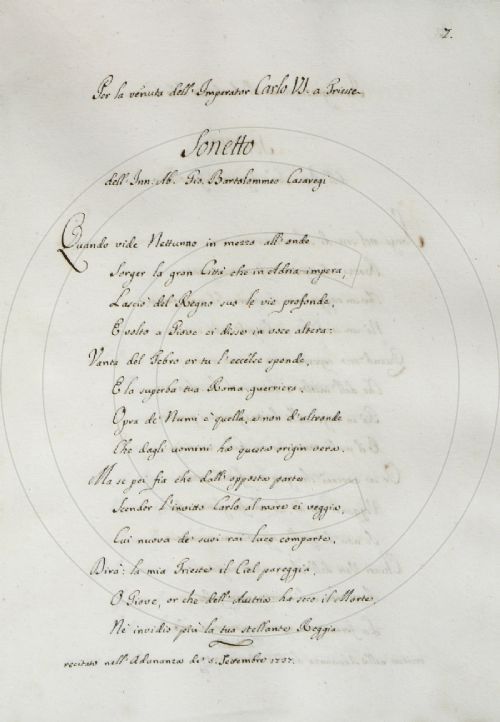 7.
Per la venuta dell' Imperator Carlo VI. a Trieste.
Sonetto
dell' Inn. Ab. Gio. Bartolommeo Casaregi
Quando vide Nettunno in mezzo all' onde
Sorger la gran Città che in Adria impera,
Lasciò del Regno suo le vie profonde,
E volto a Giove ei disse in voce altera:
Vanta del Tebro or tu l'eccelse sponde,
E la superba tua Roma guerriera:
Opra de' Numi è quella, e non d'altronde
Che dagli uomini ha questa origin vera.
Ma se poi fia che dall' opposta parte
Scender l'invitto Carlo al mare ei veggia,
Cui nuova de' suoi rai luce comparte,
Dirà: la mia Trieste il Ciel pareggia,
O Giove, or che dell' Austria ha seco il Marte,
Nè invidio più la tua stellante Reggia
recitato nell' Adonanza de' 5. Settembre 1737.